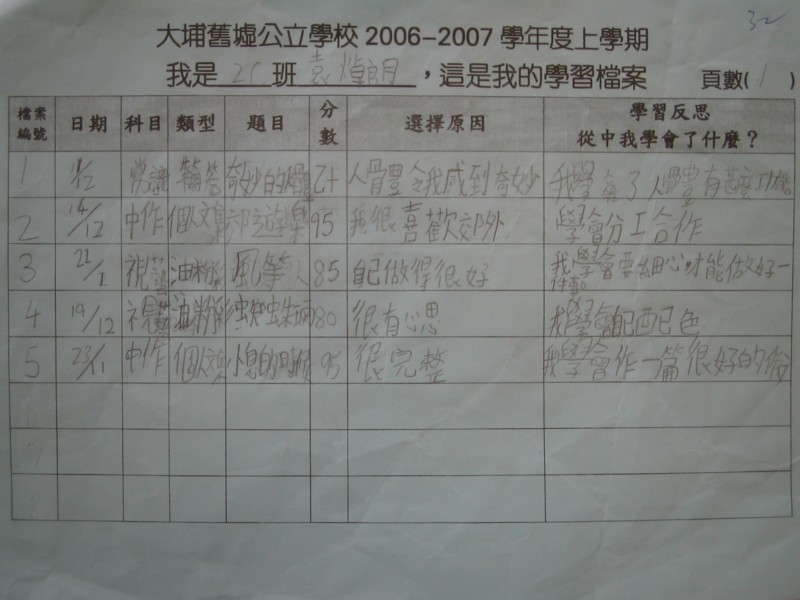 32
大埔舊墟公立學校 2006-2007 學年度上學期
我是 2C 班 袁煌朗，這是我的學習檔案 頁數( 1 )
檔案編號 日期 科目 類型 題目 分數 選擇原因 學習反思
從中我學會了什麼？
1 常識 奇妙的 人體令我感到奇妙 我學會了人體有
2 14/12 中作 個人文集 郊遊樂 95 我很喜歡郊外 學會份工合作
3 22/1 視藝 油粉彩 風箏人 85 自己做得很好 我學會要細心才能做好一件事
4 19/12 視藝 油粉彩 80 很有心思 我學會配色
5 23/11 中作 個人文集 小息的時候 95 很完整 我學會作一篇很好的
6
7